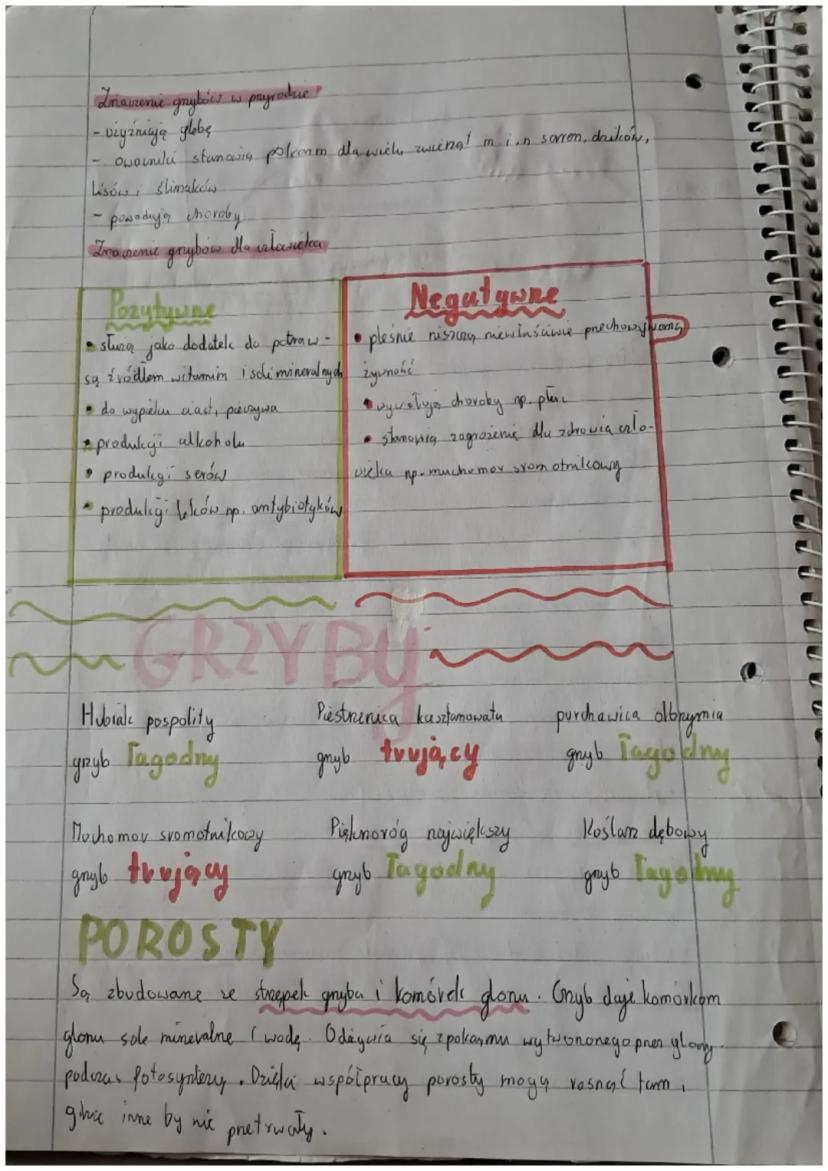 Znaczenie grzybów w przyrodzie
- użyźniają glebę
- owocniki stanowią pokarm dla wielu zwierząt m.in saren, dzików,
lisów i ślimaków
- powodują choroby
Znaczenie grzybów dla człowieka
Pozytywne
• służą jako dodatek do potraw -
są źródłem witamin i soli mineralnych
• do wypieku ciast, pieczywa
• produkcji alkoholu
• produkcji serów
• produkcji leków np. antybiotyków
Negatywne
• pleśnie niszczą niewłaściwie przechowywaną
żywność
• wywołują choroby np. płuc
• stanowią zagrożenie dla zdrowia czło-
wieka np. muchomor sromotnikowy
GRZYBY
Hubiak pospolity
grzyb łagodny
Piestrzenica kasztanowata
grzyb trujący
purchawica olbrzymia
grzyb łagodny
Muchomor sromotnikowy
grzyb trujący
Pięknoróg największy
grzyb łagodny
Koźlarz dębowy
grzyb łagodny
POROSTY
Są zbudowane ze strzępek grzyba i komórek glonu. Grzyb daje komórkom
glonu sole mineralne i wodę. Odżywia się z pokarmu wytworzonego przez glony
podczas fotosyntezy. Dzięki współpracy porosty mogą rosnąć tam,
gdzie inne by nie przetrwały.